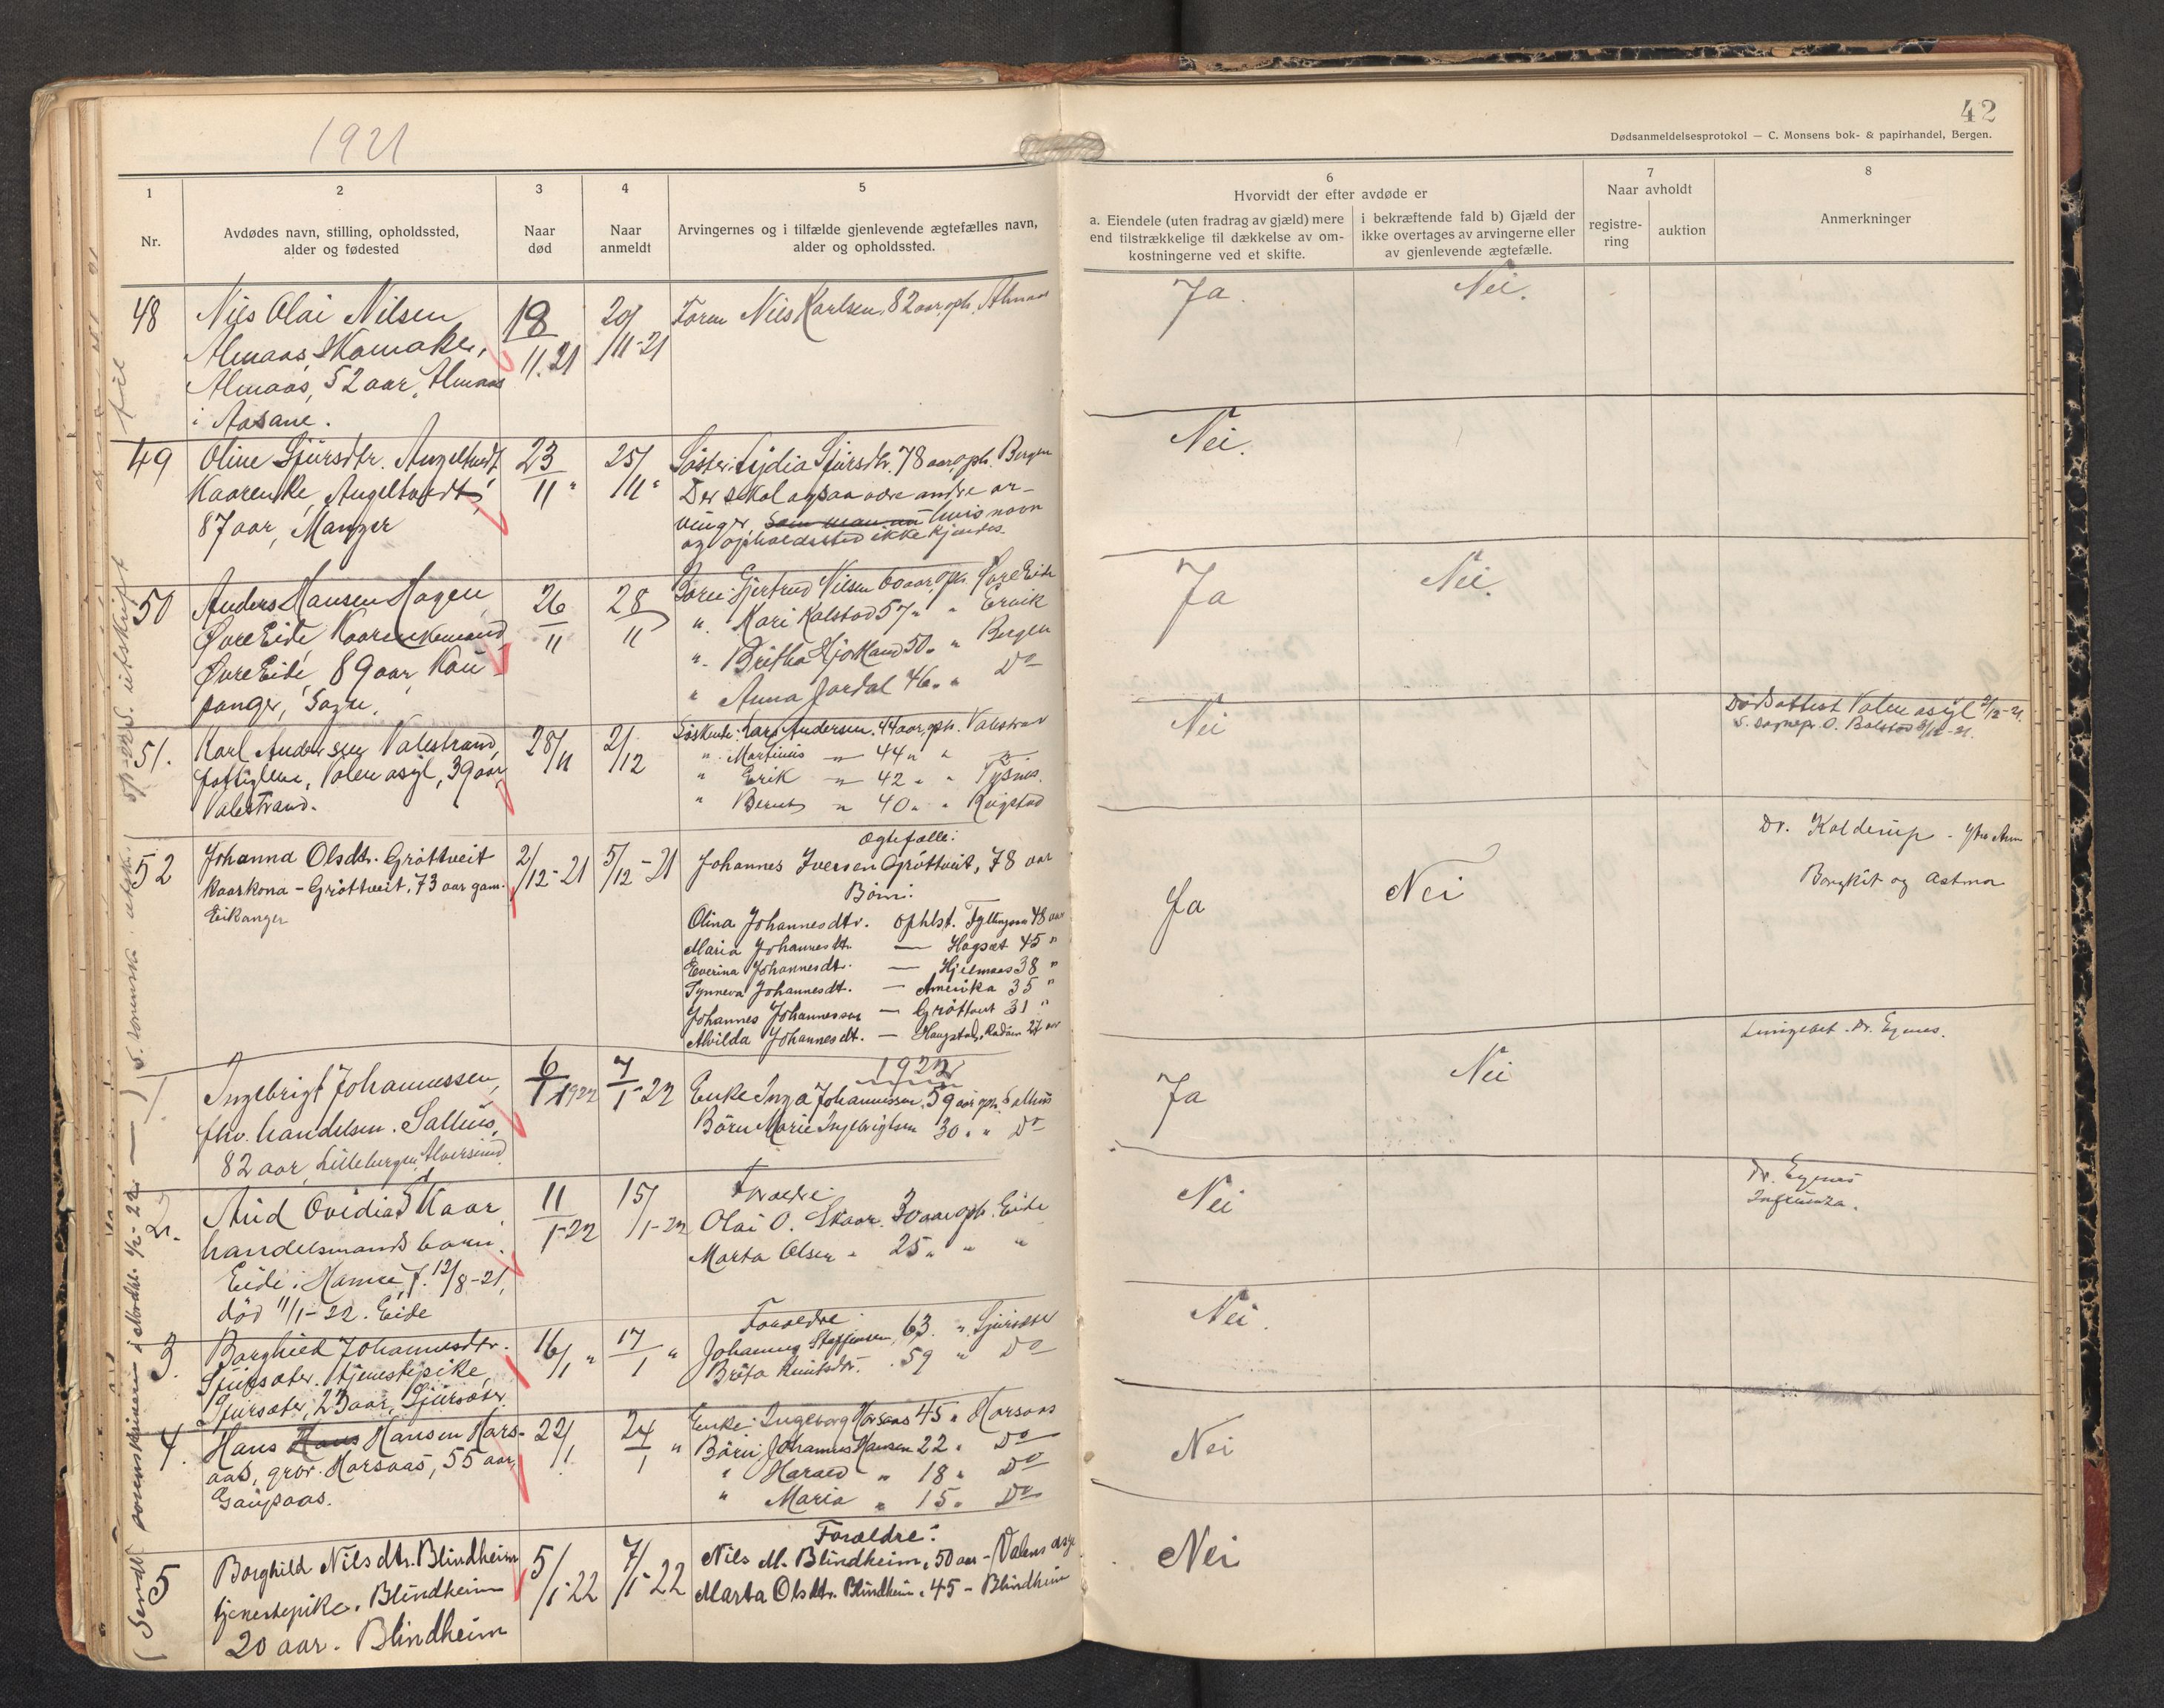 1921
42
Dødsanmeldelsesprotokol — C. Monsens bok- & papirhandel, Bergen.
1
2
3
4
5
6
7
8
Nr.
Avdødes navn, stilling, opholdssted,
alder og fødested
Naar
død
Naar
anmeldt
Arvingernes og i tilfælde gjenlevende ægtefælles navn,
alder og opholdssted.
Hvorvidt der efter avdøde er
a. Eiendele (uten fradrag av gjæld) mere
end tilstrækkelige til dækkelse av om-
kostningerne ved et skifte.
i bekræftende fald b) Gjæld der
ikke overtages av arvingerne eller
av gjenlevende ægtefælle.
Naar avholdt
registre-
ring
auktion
Anmerkninger
48
Nils Olai Nilsen
Almaas, Skomaker,
Almaas, 52 aar, Almaas
i Aasane.
18/11.21
29/11-21
Faren Nils Karlsen, 82 aar, oph. Almaas
Ja.
Nei.
49
Oline Sjursdtr. Angeltveit,
Kaarenke, Angeltvedt,
87 aar, Manger
23/11 "
25/11 "
Søster: Lydia Sjursdtr. 78 aar, oph. Bergen
Der skal ogsaa være andre ar-
vinger, som man nu hvis navn
og opholdssted ikke kjendes.
Nei.
50
Anders Hansen Hagen
Øvre Eide, Kaarenkemand,
Øvre Eide, 89 aar, Kau
panger, Sogn.
26/11
28/11
Børn: Gjertrud Nilsen 60 aar, oph. Øvre Eide
" Kari Kalstad 57 " " Ervik
" Britha Hjorthaug 50 " " Bergen
" Anna Jordal 46 " " Do
Ja
Nei.
51.
Karl Andersen Valestrand,
fattiglem, Valen asyl, 39 aar,
Valestrand.
28/11
2/12
Søskende: Lars Andersen, 44 aar, oph. Valestrand
" Martinus — 44 " " — " —
" Erik — 42 " " Tysnes.
" Bernt — 40 " "
Nei
Dødsattest Valen asyl 2/12-21.
52
Johanna Olsdtr. Grøttveit
Kaarkona - Grøttveit, 73 aar gam.
Eikanger
2/12-21
5/12-21
Ægtefælle:
Johannes Iversen Grøttveit, 78 aar
Børn:
Olina Johannesdtr. ophlst. Fyllingsnes 48 aar
Maria Johannesdtr. — Hopsæt 45 "
Everina Johannesdt. — Hjelmaas 38 "
Synneva Johannesdt. — Amerika 35 "
Johannes Johannessen — Grøttveit 31 "
Alvilda Johannesdt. — Haugstad, Radøen 27 aar
Ja
Nei
Dr. Kolderup -
Bronkit og Astma
1922
1
Ingebrigt Johannessen,
fhv. handelsm. Salhus,
82 aar, Lillebergen, Alversund
6/1 1922
7/1-22
Enke Inga Johannessen, 59 aar, oph. Salhus
Børn Marie Ingebrigtsen 30 " " Do
Ja
Nei
Lungebet. Dr. Egenes.
2.
Aud Ovidia Skaar
handelsmands barn.
Eide i Hamre, f. 12/8-21,
død 11/1-22. Eide
11/1-22
15/1-22
Forældre:
Olai O. Skaar. 30 aar oph. Eide
Marta Olsen " 25 " " "
Nei
Dr. Egenes
Influenza.
3.
Borghild Johannesdtr.
Sjursæter. tjenestepike,
Sjursæter, 23 aar, Sjursæter.
16/1 "
17/1 "
Forældre
Johannes Steffensen, 63. " Sjursæter
Brita Knutsdtr. 59 " Do
Nei.
4.
Hans Hans Hansen Hors-
aas, grdr. Horsaas, 55 aar,
Gaupaas.
22/1
24/1 "
Enke: Ingeborg Horsaas 45 " Horsaas
Børn: Johannes Hansen 22 " Do
" Harald " 18 " Do
" Maria " 15 " Do
Nei
5
Borghild Nilsdtr. Blindheim
tjenestepike. Blindheim
20 aar. Blindheim
5/1-22
7/1-22
Forældre:
Nils M. Blindheim, 50 aar - Valens asyl
Marta Olsdtr. Blindheim, 45 - Blindheim
Nei